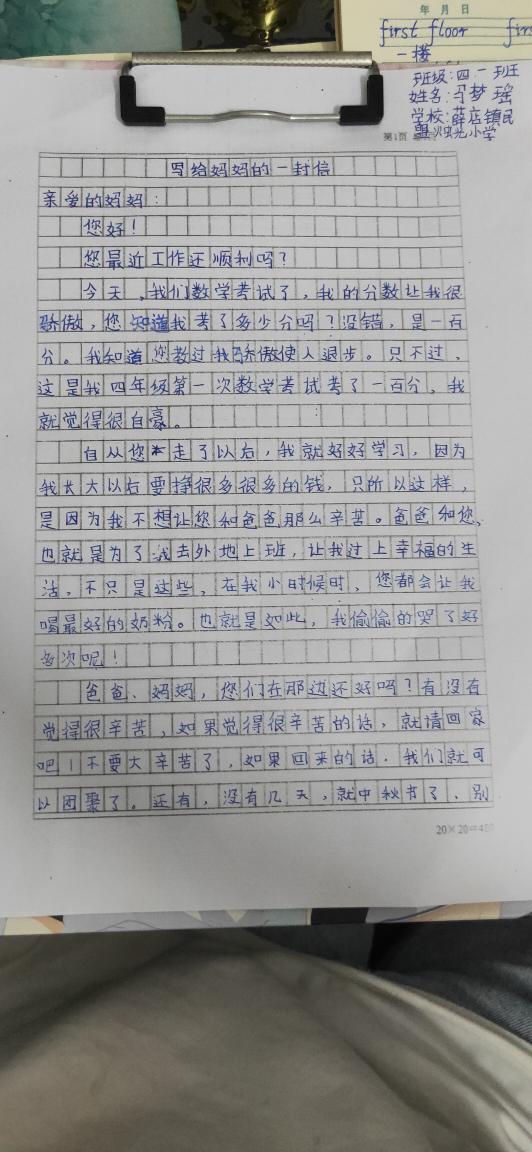 年 月 日
first floor fir
一楼
班级:四一班
姓名:马梦瑶
学校:薛店镇民
盟烛光小学
第1页
写给妈妈的一封信
亲爱的妈妈:
您好!
您最近工作还顺利吗?
今天,我们数学考试了,我的分数让我很
骄傲,您知道我考了多少分吗?没错,是一百
分。我知道您教过我骄傲使人退步。只不过,
这是我四年级第一次数学考试考了一百分,我
就觉得很自豪。
自从您走了以后,我就好好学习,因为
我长大以后要挣很多很多的钱,只所以这样,
是因为我不想让您和爸爸那么辛苦。爸爸和您,
也就是为了我去外地上班,让我过上幸福的生
活,不只是这些,在我小时候时,您都会让我
喝最好的奶粉。也就是如此,我偷偷的哭了好
多次呢!
爸爸、妈妈,您们在那边还好吗?有没有
觉得很辛苦,如果觉得很辛苦的话,就请回家
吧!不要太辛苦了,如果回来的话.我们就可
以团聚了。还有,没有几天,就中秋节了、别
20×20=400